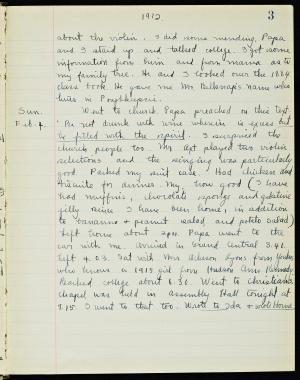 1912. 3
about the violin. I did some mending. Papa
and I staid up and talked college. I got some
information from him and from mama as to
my family tree. He and I looked over the 1884
class book. He gave me Mr Bellangi's name who
lives in Poughkeepsie.
Sun. Went to church Papa preached on this text
Feb 4. "Be not drunk with wine wherein is excess but
be filled with the spirit. I surprised the
church people too. Mr played two violin
selections and the singing was particularly
good. Packed my suit case. Had chicken and
for dinner. My, how good (I have
had muffins, chocolate sponge and gelatine
jelly since I have been home, in addition
to banana & peanut salad and potato salad)
Left home about 2 P.M. Papa went to the
car with me. Arrived in Grand Central 3.40.
Left 4.03. Sat with Mrs Lyons from Yonkers
who knows a 1915 girl from Hudson Ann Kennedy
Reached college about 6.30. Went to Christians
chapel was held in assembly Hall tonight at
7.15 I went to that too. Wrote to Ida & wrote Home